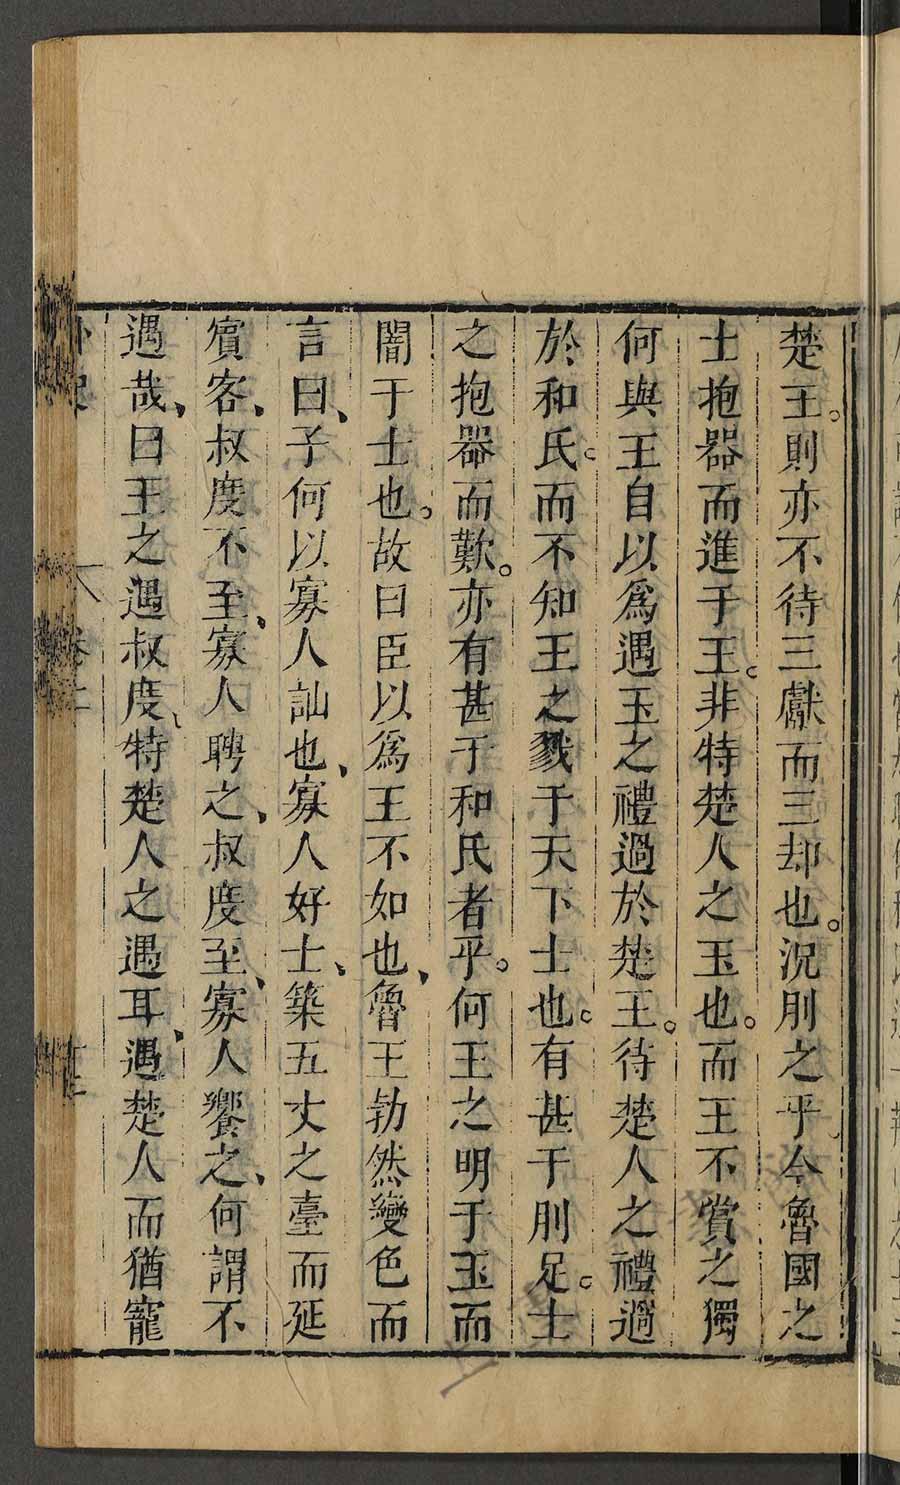 楚王。則亦不待三獻而三却也。況刖之乎今魯國之
士抱器而進于王。非特楚人之玉也。而王不賞之獨
何與王自以爲遇玉之禮過於楚王。待楚人之禮過
於和氏。而不知王之戮于天下士也。有甚于刖足。士
之抱器而歎。亦有甚于和氏者乎。何王之明于玉而
闇于士也。故曰臣以爲王不如也、魯王勃然變色而
言曰、子何以寡人訕也、寡人好士、築五丈之臺而延
賓客、叔度不至、寡人聘之、叔度至、寡人饗之、何謂不
遇哉、曰王之遇叔度、特楚人之遇耳、遇楚人而猶寵